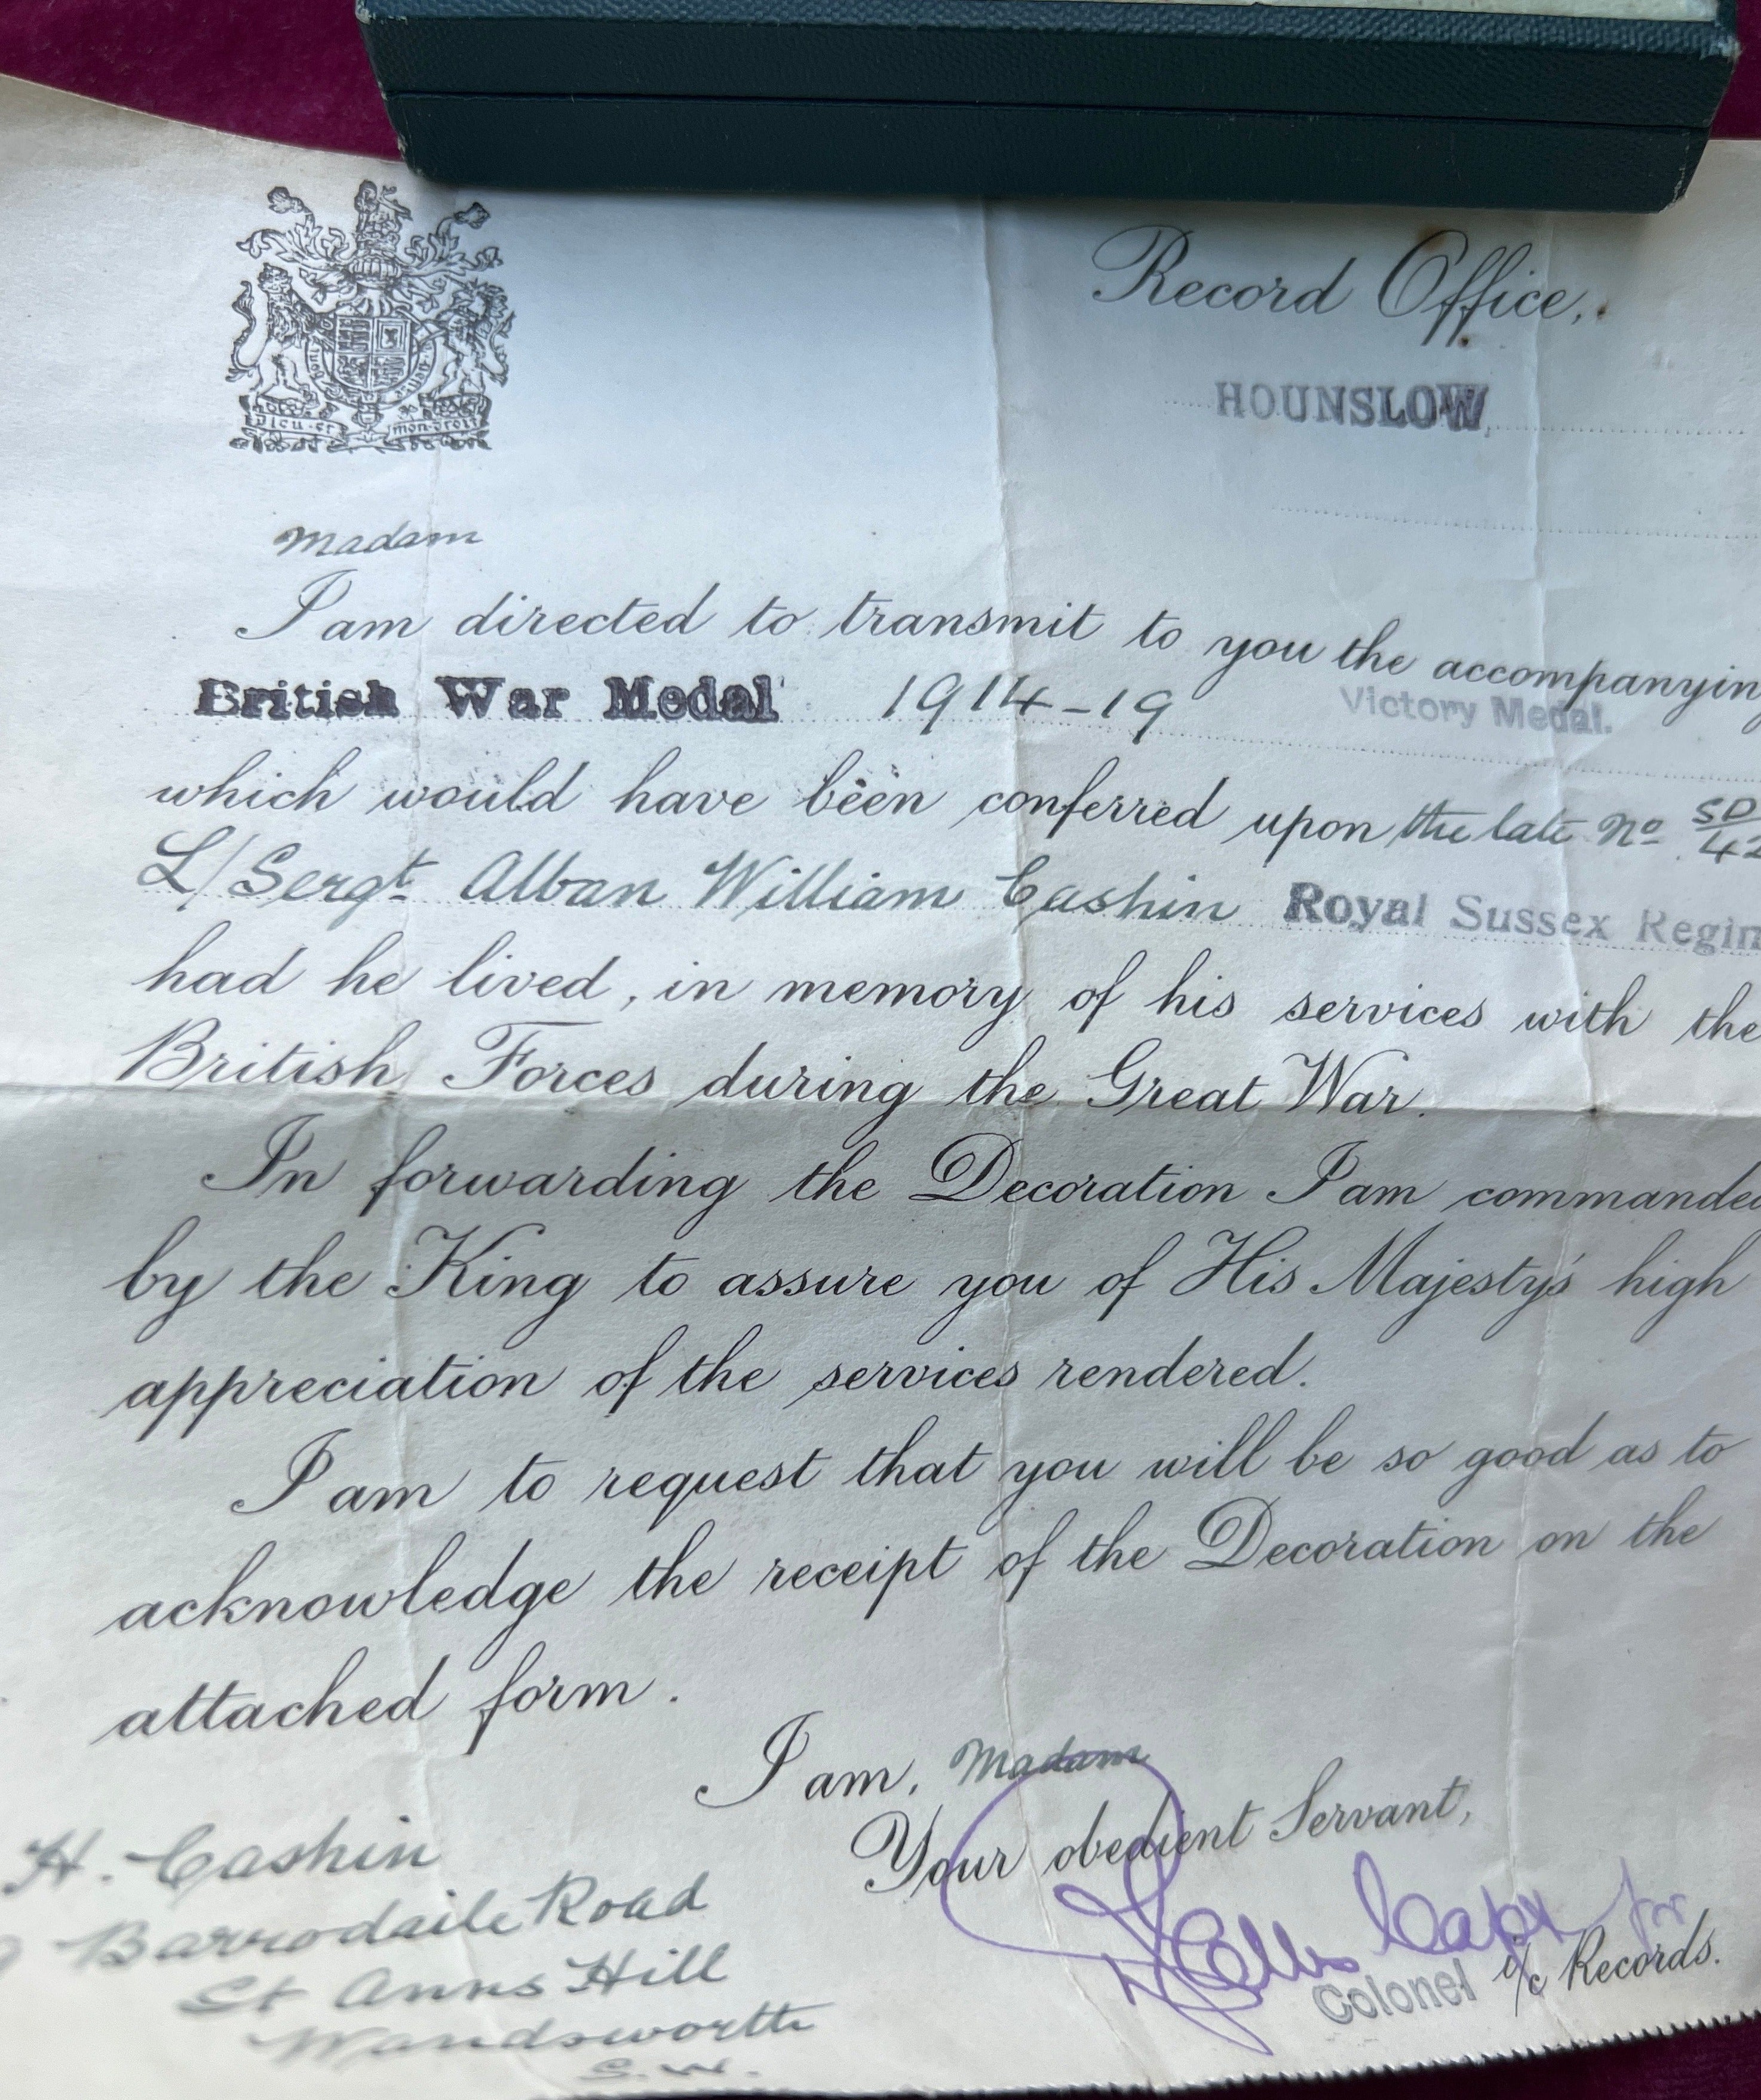 Dieu et mon droit
Record Office,
HOUNSLOW
Madam
I am directed to transmit to you the accompanying
British War Medal 1914-19 Victory Medal.
which would have been conferred upon the late No SD
L/Sergt Alban William Cashin Royal Sussex Regim
had he lived, in memory of his services with the
British Forces during the Great War.
In forwarding the Decoration I am commanded
by the King to assure you of His Majesty's high
appreciation of the services rendered.
I am to request that you will be so good as to
acknowledge the receipt of the Decoration on the
attached form.
I am, Madam
Your obedient Servant,
Capt for
Colonel i/c Records.
H. Cashin
Barrodaile Road
St Anns Hill
Wandsworth
S.W.